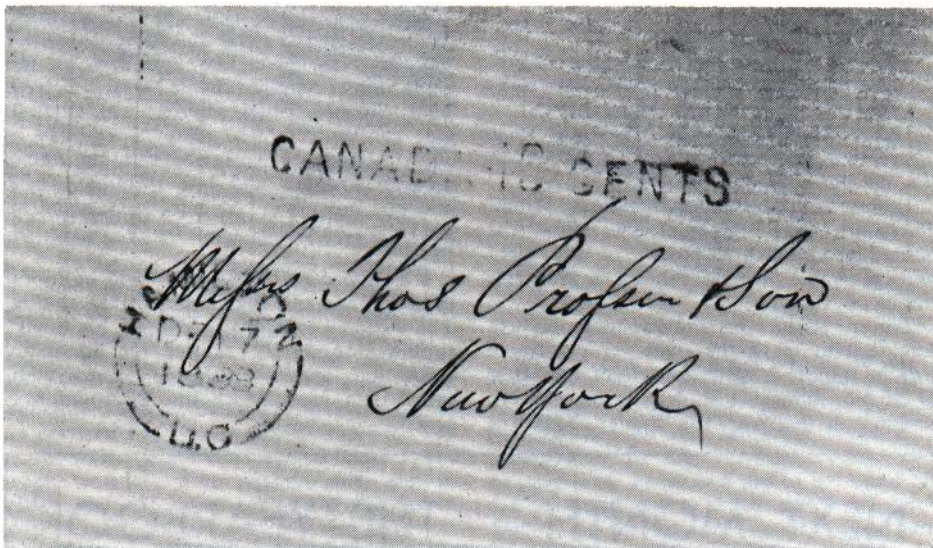 CANADA 10 CENTS
Messrs Thos Prosser & Son
New York
U.C